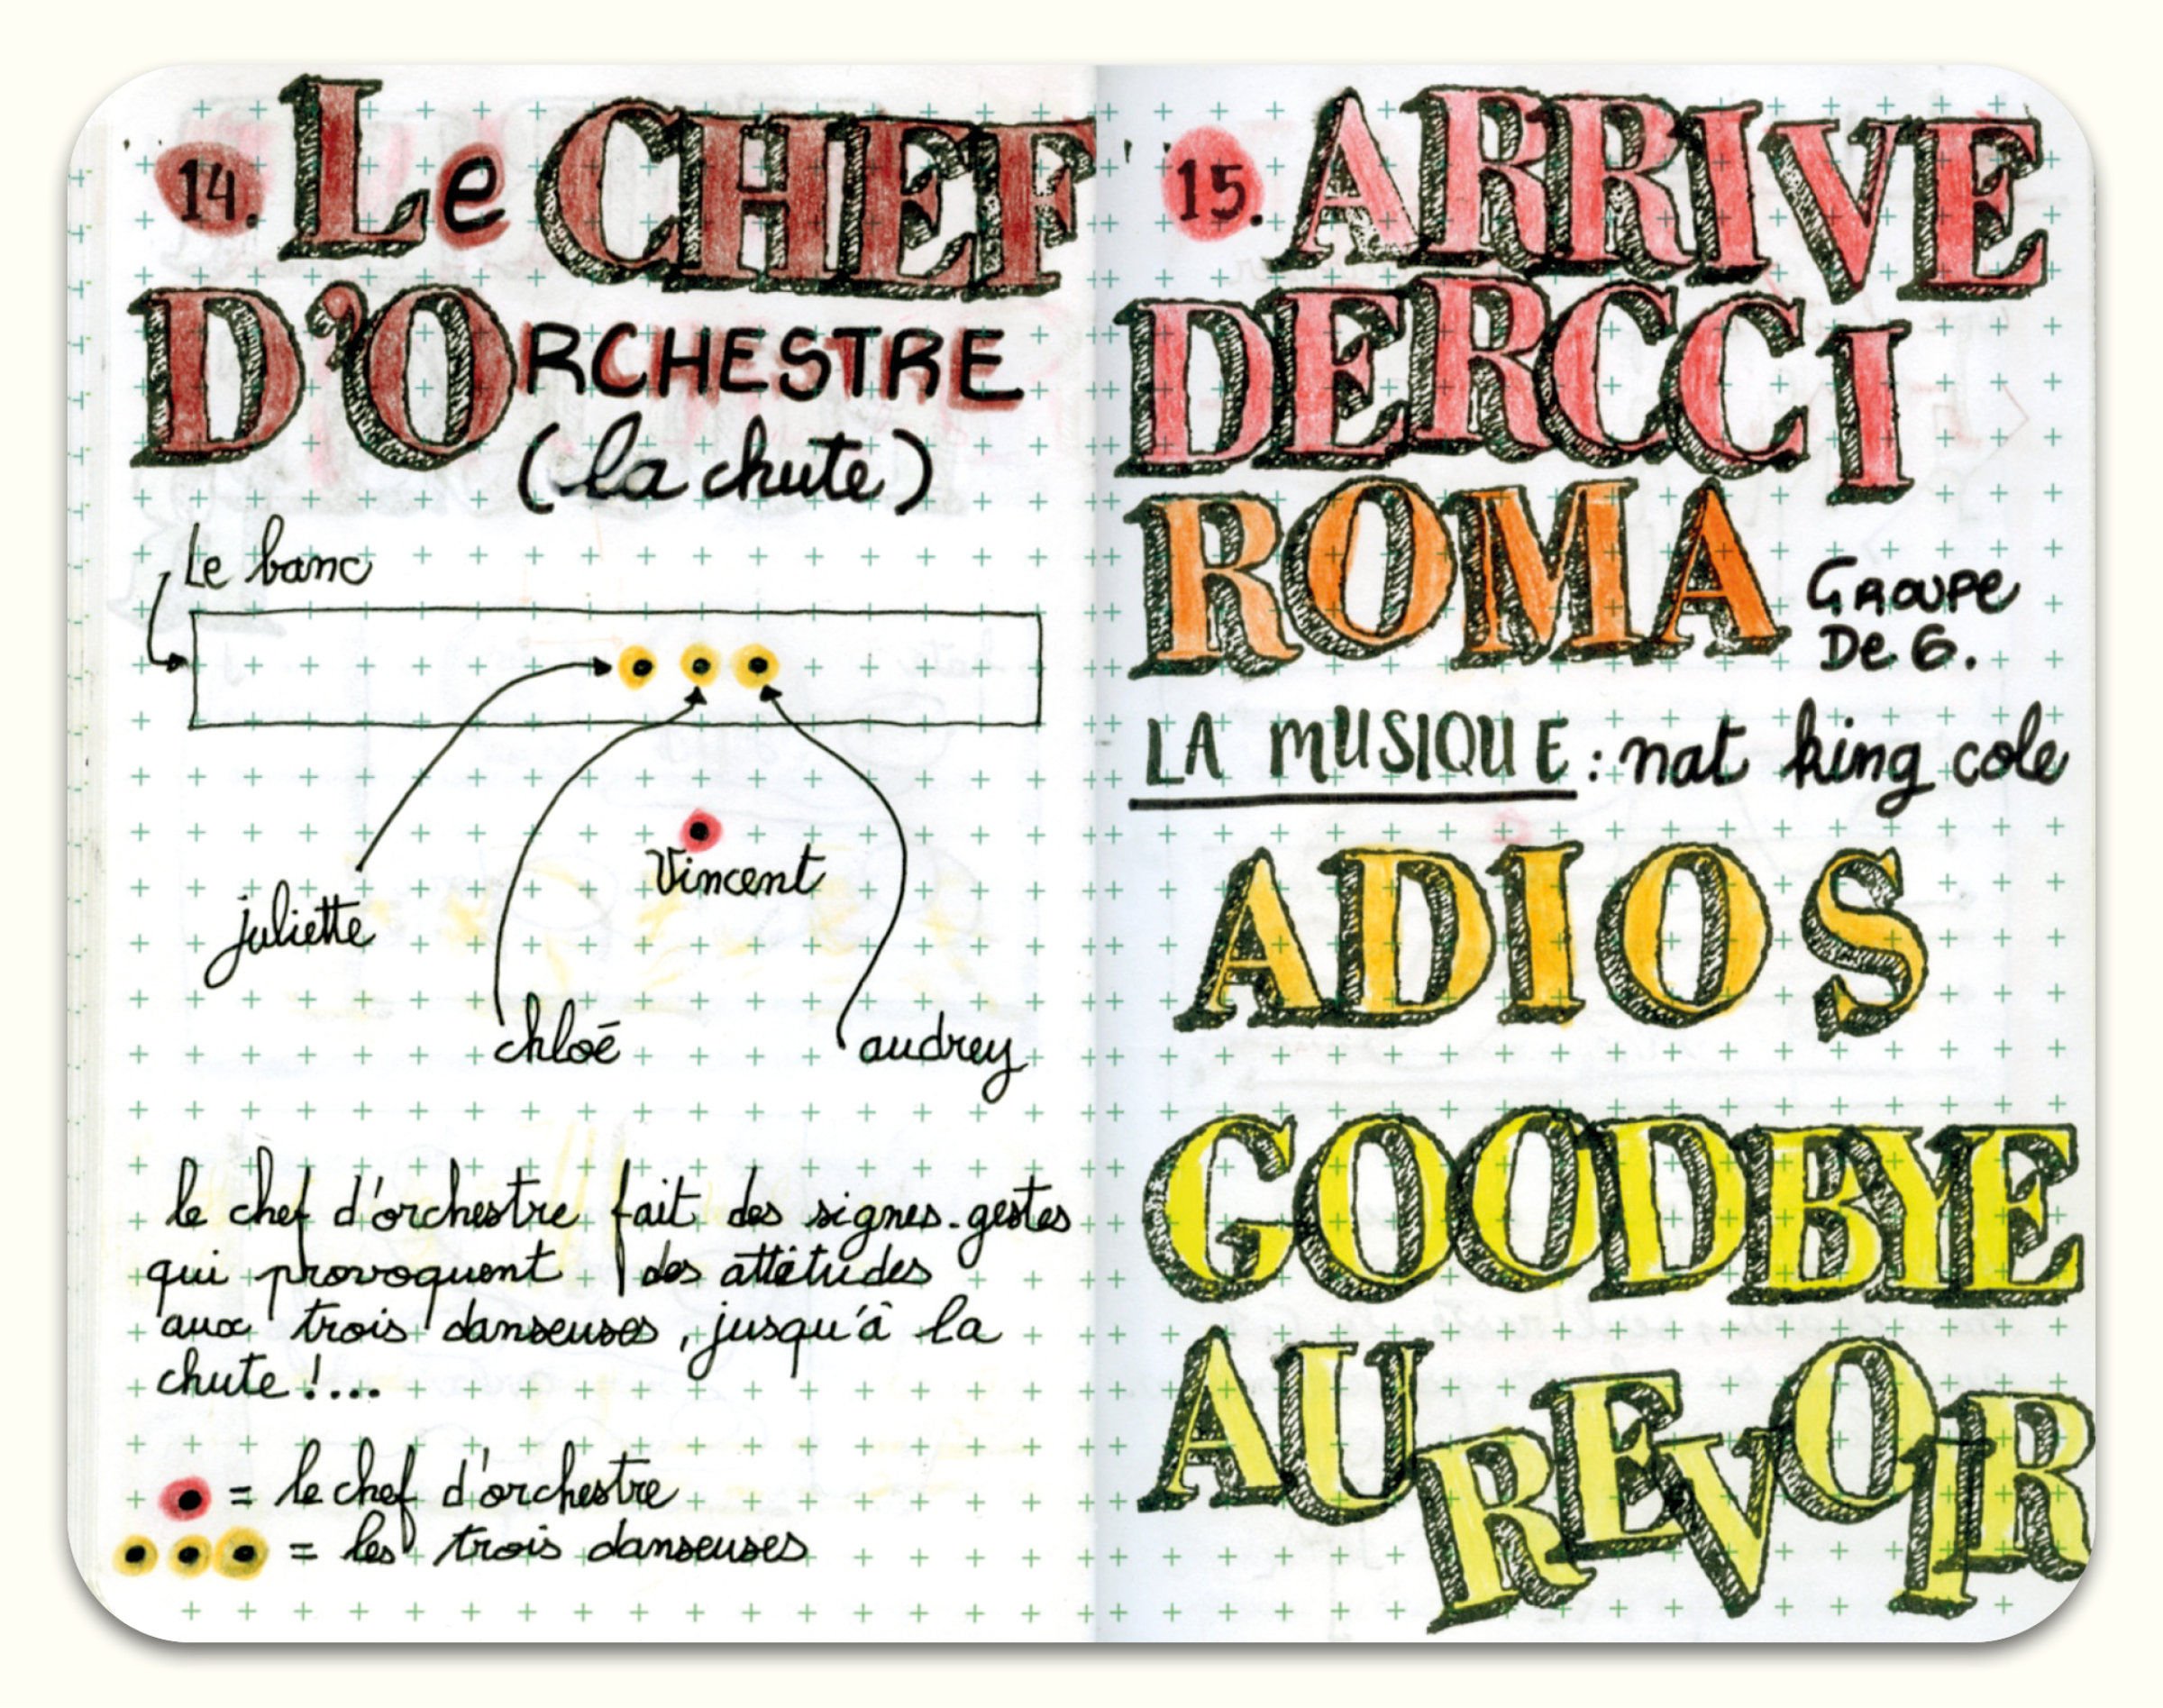 14. Le CHEF
D'ORCHESTRE
(la chute)
Le banc
Vincent
juliette
chloé
audrey
le chef d'orchestre fait des signes-gestes
qui provoquent des attitudes
aux trois danseuses, jusqu'à la
chute !...
= le chef d'orchestre
= les trois danseuses
15. ARRIVE
DERCCI
ROMA
GROUPE
De 6.
LA MUSIQUE : nat king cole
ADIOS
GOODBYE
AU REVOIR